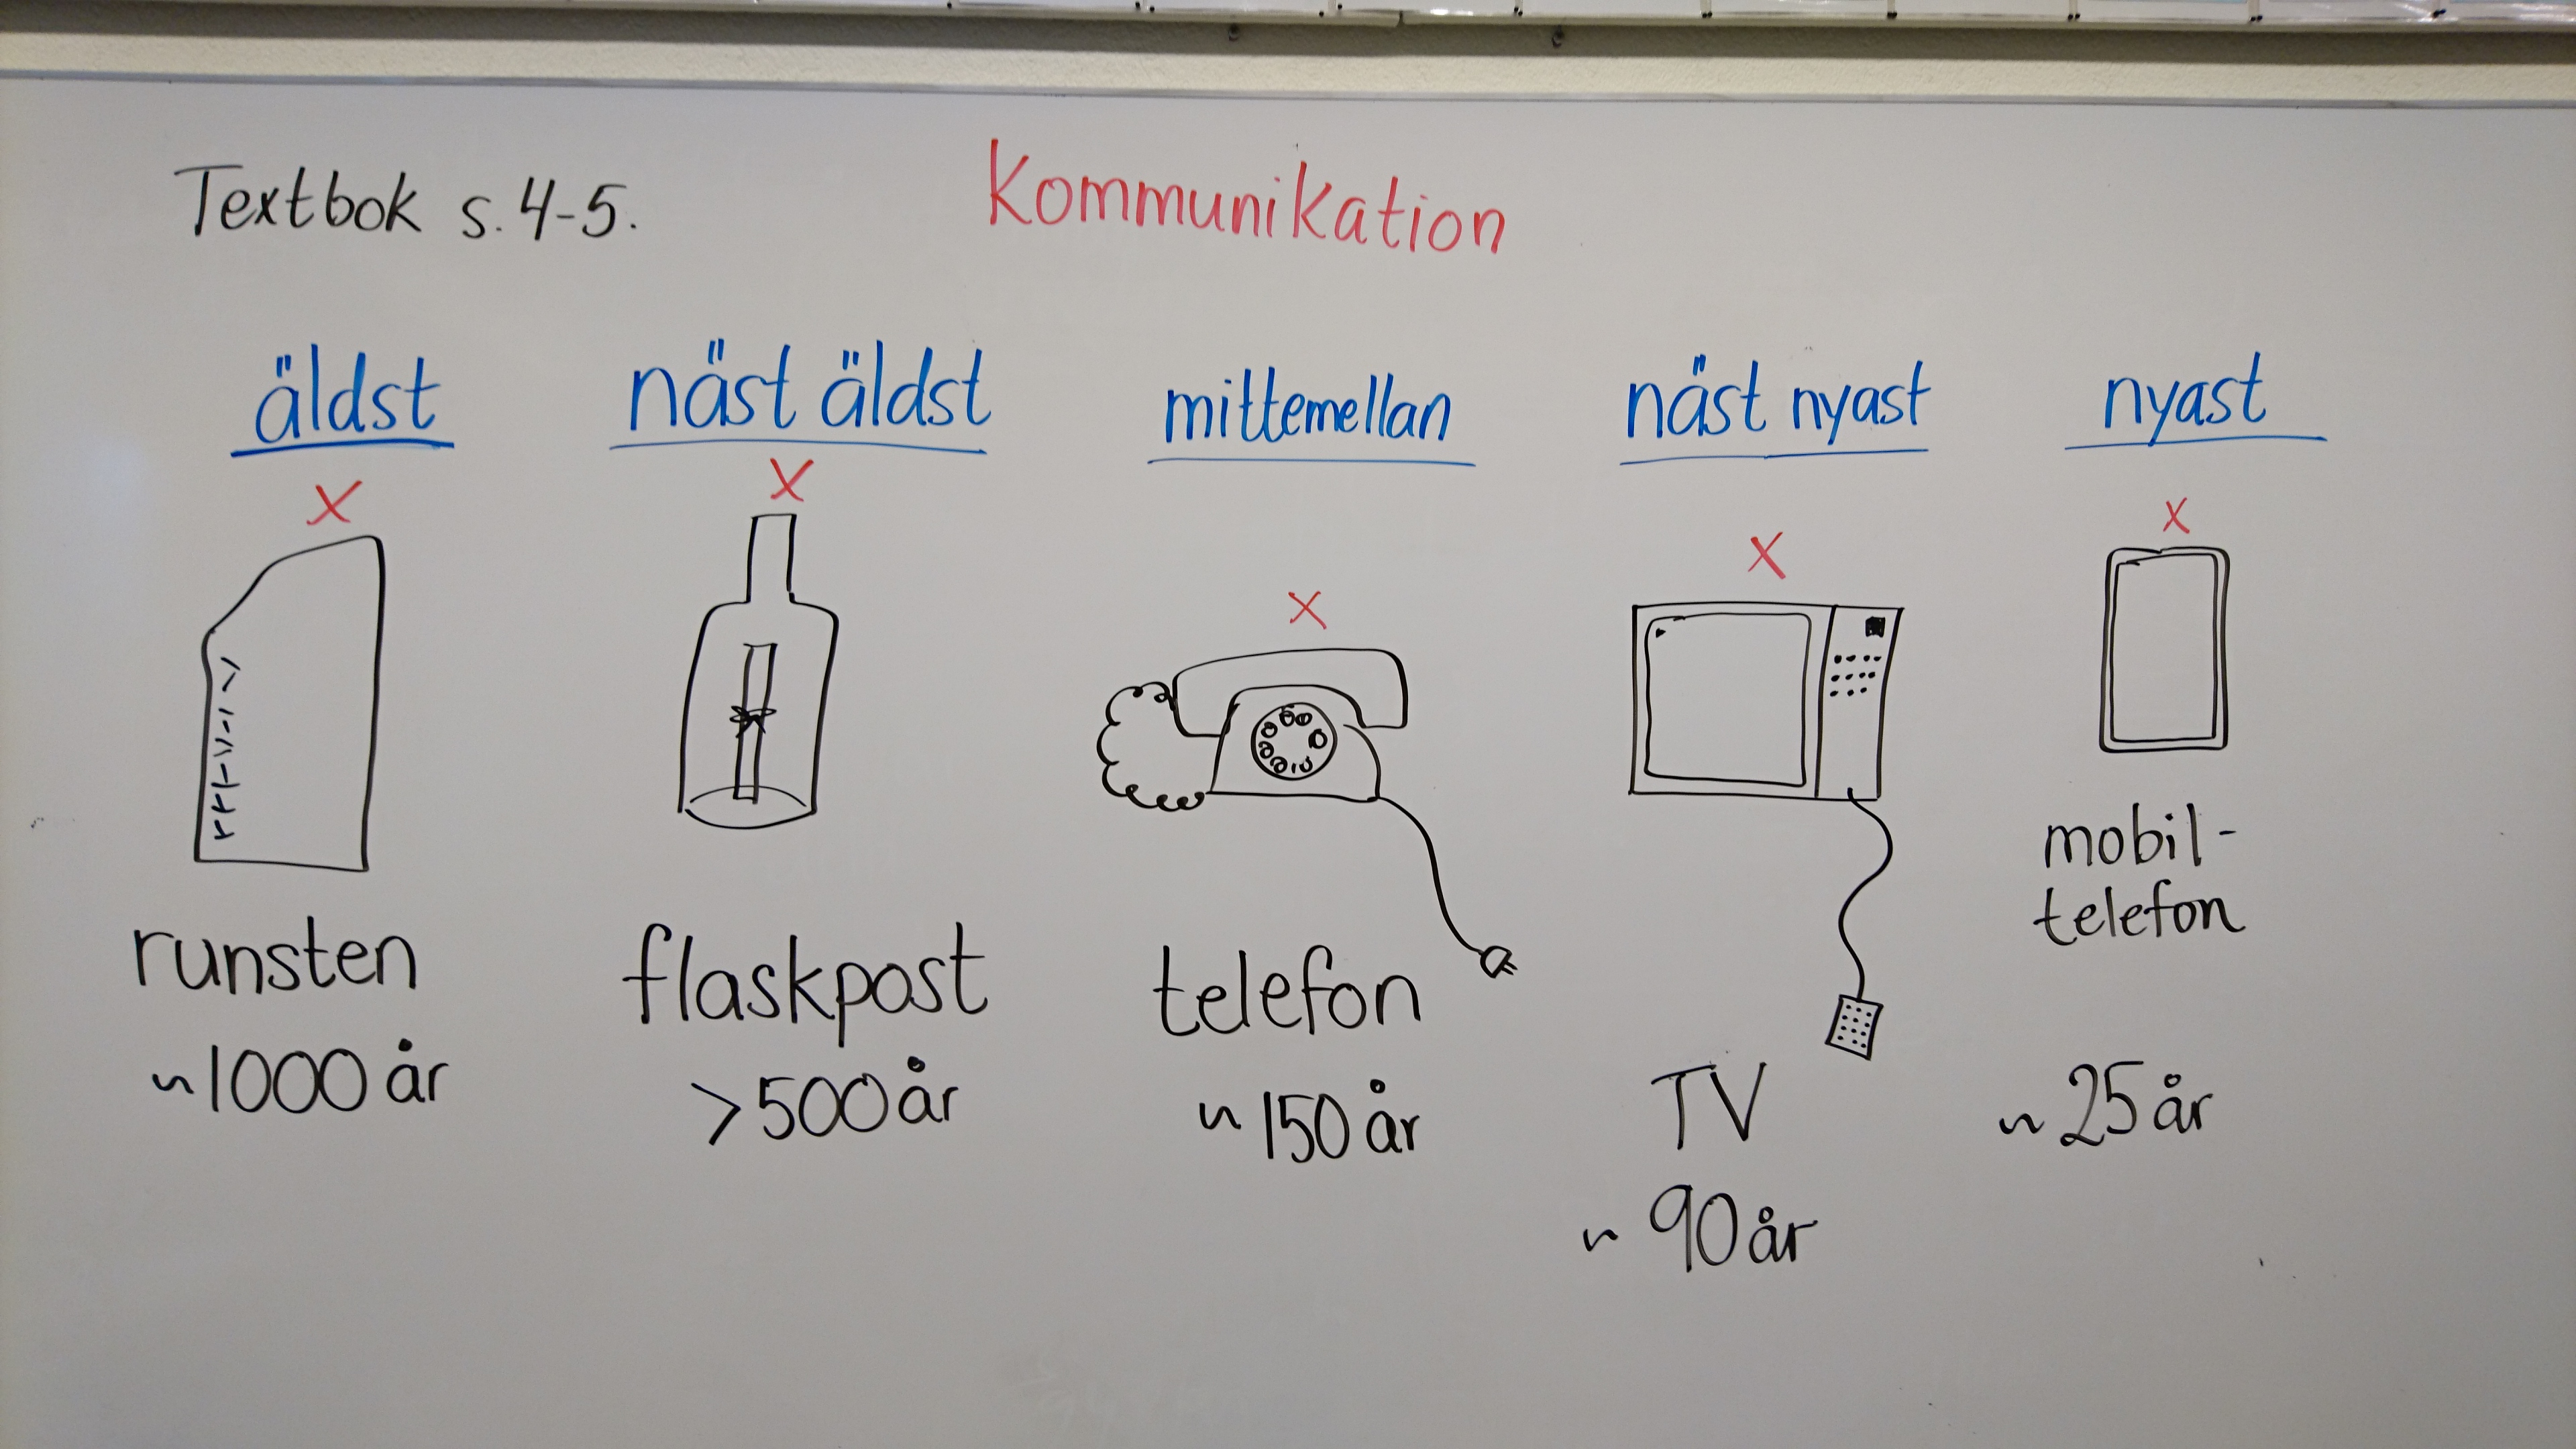 Textbok s. 4-5.
Kommunikation
äldst
näst äldst
mittemellan
näst nyast
nyast
x
x
x
x
x
runsten
~1000 år
flaskpost
>500 år
telefon
~ 150 år
TV
~ 90 år
mobil-
telefon
~ 25 år